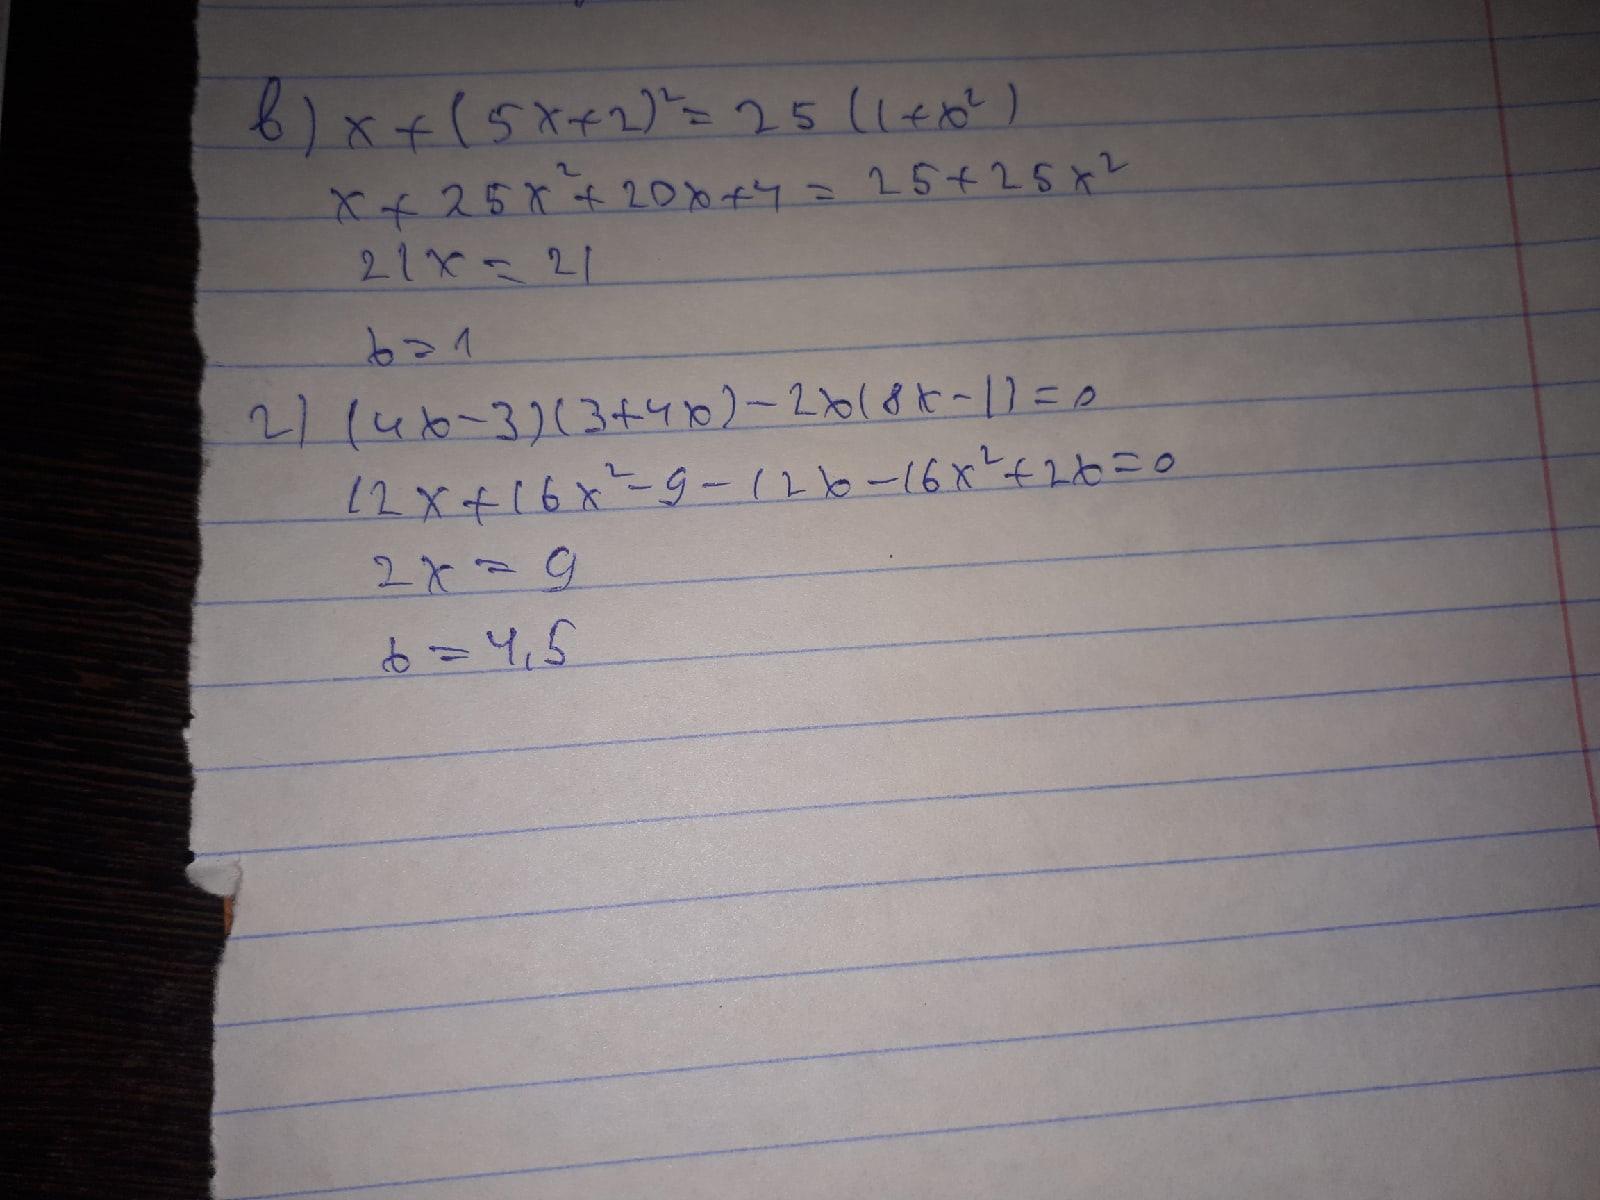 в) x+(5x+2)²=25(1+x²)
x+25x²+20x+4=25+25x²
21x=21
x=1
г) (4x-3)(3+4x)-2x(8x-1)=0
12x+16x²-9-12x-16x²+2x=0
2x=9
x=4,5